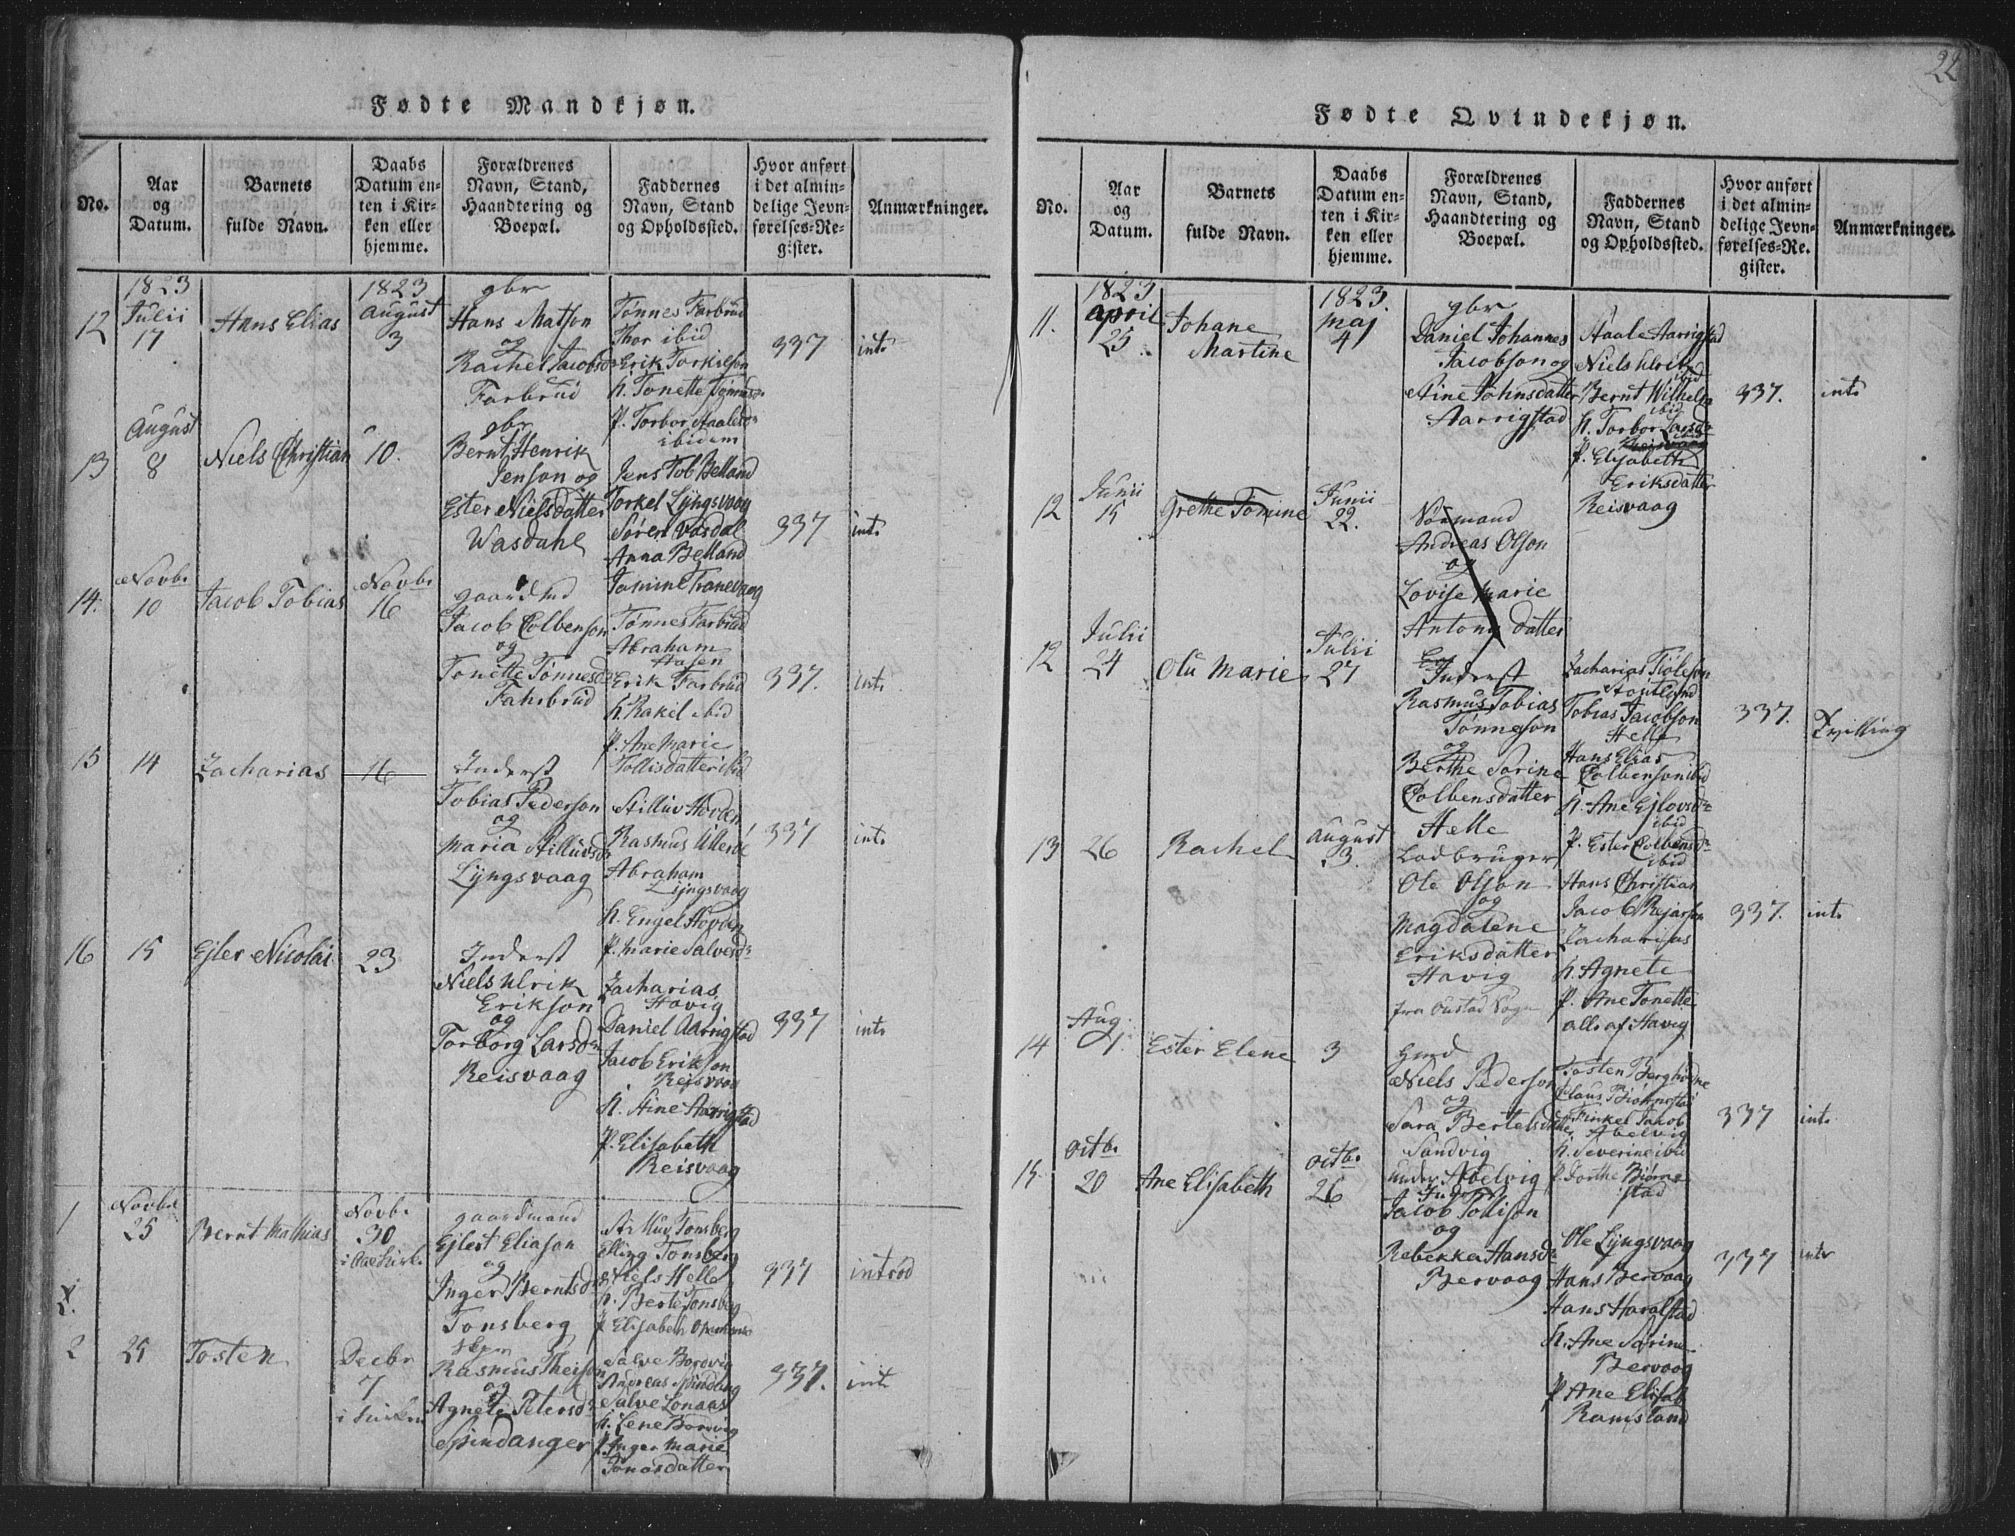 22
Fødte Mandkjøn.
No.
Aar
og
Datum.
Barnets
fulde Navn.
Daabs
Datum en-
ten i Kir-
ken eller
hjemme.
Forældrenes
Navn, Stand,
Haandtering og
Boepæl.
Faddernes
Navn, Stand
og Opholdssted.
Hvor anført
i det almin-
delige Jevn-
førelses-Re-
gister.
Anmærkninger.
12
1823
Julii
17
Hans Elias
1823
August
3
gbr
Hans Matson
og
Rachel Jacobsd
Farbrud
Tønnes Farbrud
Thor ibid
Erik Torkilson
h. Tonette Tønnesd
P. Torbor Aaalesd
ibidem
337
int.
13
August
8
Niels Christian
10.
gbr
Bernt Henrik
Jenson og
Ester Nielsdatter
Wasdahl
Jens Tob Belland
Torkel Lyngsvaag
Søren Vasdal
Anna Belland
Tomine Tranevaag
337
int.
14.
Novbr
10
Jacob Tobias
Novbr
16
gaardmd
Jacob Colbenson
og
Tonette Tønnesd
Fahrbrud
Tønnes Farbrud
Abraham
Aasen
Erik Farbrud
h. Rakel ibid
P. Ane Marie
Tollisdatter ibid
337.
int.
15
14
Zacharias
16
Inderst
Tobias Pederson
og
Maria Stilluvsd
Lyngsvaag
Stilluv Hovan
Rasmus Ulleroe
Abraham
Lyngsvaag
h. Engel Hovan
P. Marie Salvesd
337
int.
16
15
Ejler Nicolai
23
Inderst
Niels Ulrik
Erikson
og
Torborg Larsd
Reisvaag
Zacharias
Havig
Daniel Aarrigstad
Jacob Erikson
Reisvaag
h. Stine Aarrigstad
P. Elisabeth
Reisvaag
337
int.
1
Novbr
25
Bernt Mathias
Novbr
30
gaardmand
Ejlert Eliason
og
Inger Berntsd
Tonsberg
Tonsberg
Elling Tonsberg
Niels Helle
h. Berte Tonsberg
P. Elisabeth
337
introd
2.
2
25
Tosten
Decbr
7
Rasmus Theison
og
Agnete Petersd
Spindanger
Salve Bordvig
Andreas Spindang
Salve Lonaas
h. Lene Bordvig
P. Inger Marie
Jonasdatter
337.
int.
Fødte Qvindekjøn.
No.
Aar
og
Datum.
Barnets
fulde Navn.
Daabs
Datum en-
ten i Kir-
ken eller
hjemme.
Forældrenes
Navn, Stand,
Haandtering og
Boepæl.
Faddernes
Navn, Stand
og Opholdssted.
Hvor anført
i det almin-
delige Jevn-
førelses-Re-
gister.
Anmærkninger.
11.
1823
April
25
Johane
Martine
1823.
Maj
4
gbr
Daniel Johannes
Jacobson og
Stine Johnsdatter
Aarrigstad
Staale Aarrigstad
Niels Ulrik
ibid
Bernt Wilhelm
ibid
h. Torbor Larsd
ibid
P. Elisabeth
Eriksdatter
Reisvaag
337.
int.
12
Junii
15
Grethe Tomine
Junii
22.
Andreas Olson
og
Lovise Marie
Antony datter
12
Julii
24
Olu Marie
Julii
27
Inderst
Rasmus Tobias
Tønneson
og
Berthe Sorine
Colbensdatter
Helle
Zacharias
Tobias Jacobson
Helle
Hans Elias
Colbenson ibid
h. Ane Ejlovsd
ibid
P. Ester Colbensd
ibid
337.
Zvilling
13
26
Rachel
August
3.
Ladbruger
Ole Olson
og
Magdalene
Eriksdatter
Havig
fra Oustad Sogn
Hans Christian
Jacob Rejarson
Zacharias
h. Agnete
P. Ane Tonette
alle af Havig
337.
int.
14
Aug.
1.
Ester Elene
3
Niels Pederson
og
Sara Bertelsdatter
Sandvig
under Abelvig
Tosten
Claus Bjørnestad
Tinkel Jacob
Abelvig
h. Severine ibid
P. Dorthe Bjørne
stad
337
int.
15.
Octbr
20
Ane Elisabeth
Octbr
26
Jacob Tollison
og
Rebekka Hansd
Bervaag
Ole Lyngsvaag
Hans Bervaag
Hans Haralstad
h. Ane Sørine
Bervaag
P. Ane Elisab
Ramsland
337
int